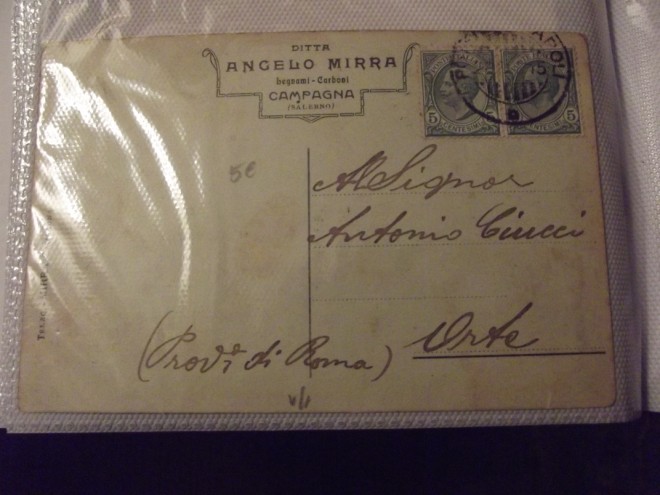 DITTA
ANGELO MIRRA
Legnami - Carboni
CAMPAGNA
(SALERNO)
5
CENTESIMI
5
CENTESIMI
5€
Al Signor
Antonio Ciucci
Orte
(Prov.ª di Roma)